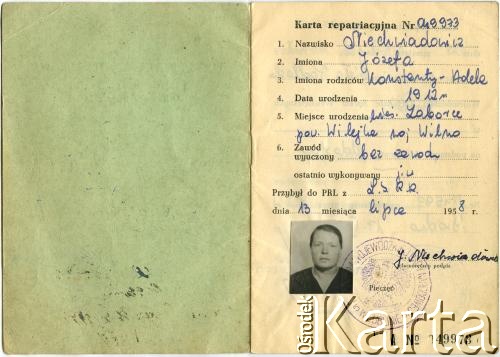 Karta repatriacyjna Nr 049973
1. Nazwisko Niechwiadowicz
2. Imiona Józefa
3. Imiona rodziców Konstanty-Adela
4. Data urodzenia 1912 r
5. Miejsce urodzenia wieś. Zaborce
pow. Wilejka woj Wilno
6. Zawód
wyuczony bez zawodu
ostatnio wykonywany j.w
Przybył do PRL z
dnia 13 miesiąca lipca 1958 r.
J. Niechwiadowicz
własnoręczny podpis
Pieczęć
Ośrodek
Karta
A № 049973